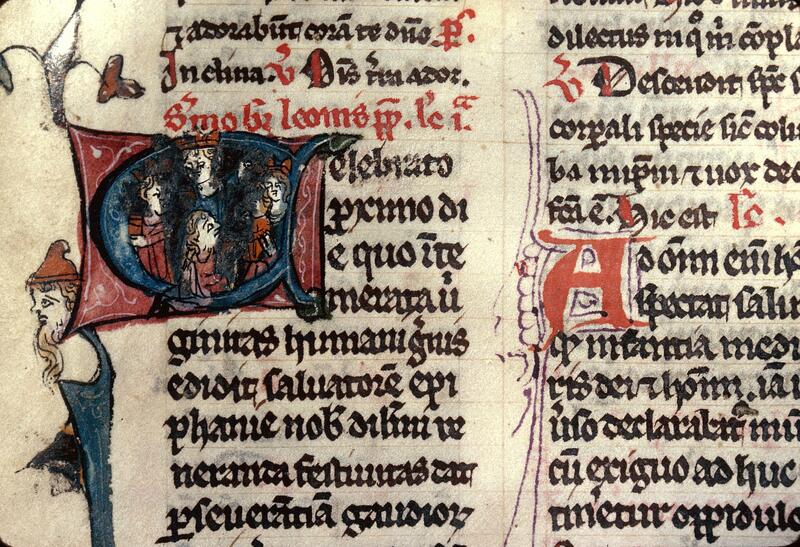 ⁊ adorabūt corā te dūe p̄.
Inclina. v̄ Oīs tr̄ra ador.
Sr̄mo bt̄i leonis pp̄. lc̄. i.ᵃ
Celebrato
ꝓximo di
e quo īte
merata ū
ginitas humani gn̄is
edidit saluatorē epi
phanie nob̄ dilc̄mi ue
neranda festiuitas dat
ꝑseuerātiā gaudioꝝ
dilectus in q̊ m̄ cōpla
v̄ Descendit sp̄c s
corꝑali specie sic̄ colū
ba in ip̄m ⁊ uox de c
fc̄a ē. Hic est lc̄.
Ad om̄m eni hō
spectat salu
infantia medi
ris dei ⁊ hoīm. iā
uſo declarabat mū
cū exiguo ad huc
tin̄etur oppidulo